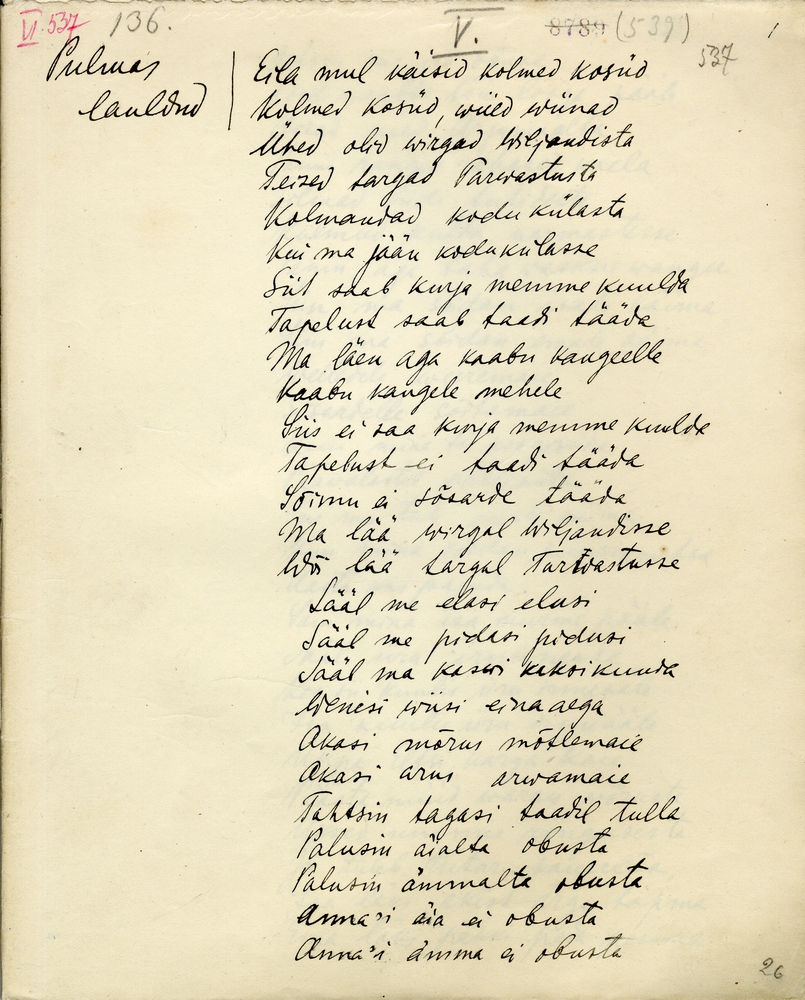 VI 537
136.
V.
8789 (539)
1
537
Pulmas
lauldud
Eila mul käisid kolmed kosüd
Kolmed kosüd, wiied wiinad
Ühed olid wirgad Wiljandista
Teised targad Tarwastusta
Kolmandad kodu külasta
Kui ma jään kodukülasse
Siit saab kurja memme kuulda
Tapelust saab taadi tääda
Ma läen aga kaabu kangeelle
Kaabu kangele mehele
Siis ei saa kurja memme kuulda
Tapelust ei taadi tääda
Sõimu ei sõsarde tääda
Ma lää wirgal Wiljandisse
Wõi lää targal Tartwastusse
Sääl me elasi elusi
Sääl me pidasi pidusi
Sääl ma kaswi kaksikuuda
Wenesi wiisi eina aega
Akasi mõrus mõtlemaie
Akasi arus arwamaie
Tahtsin tagasi taadil tulla
Palusin äialta obusta
Palusin ämmalta obusta
Anna'i äia ei obusta
Anna'i ämma ei obusta
26